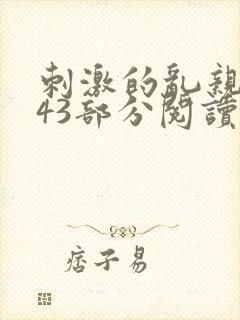 刺激的亂親
43部分閱讀
痞子易